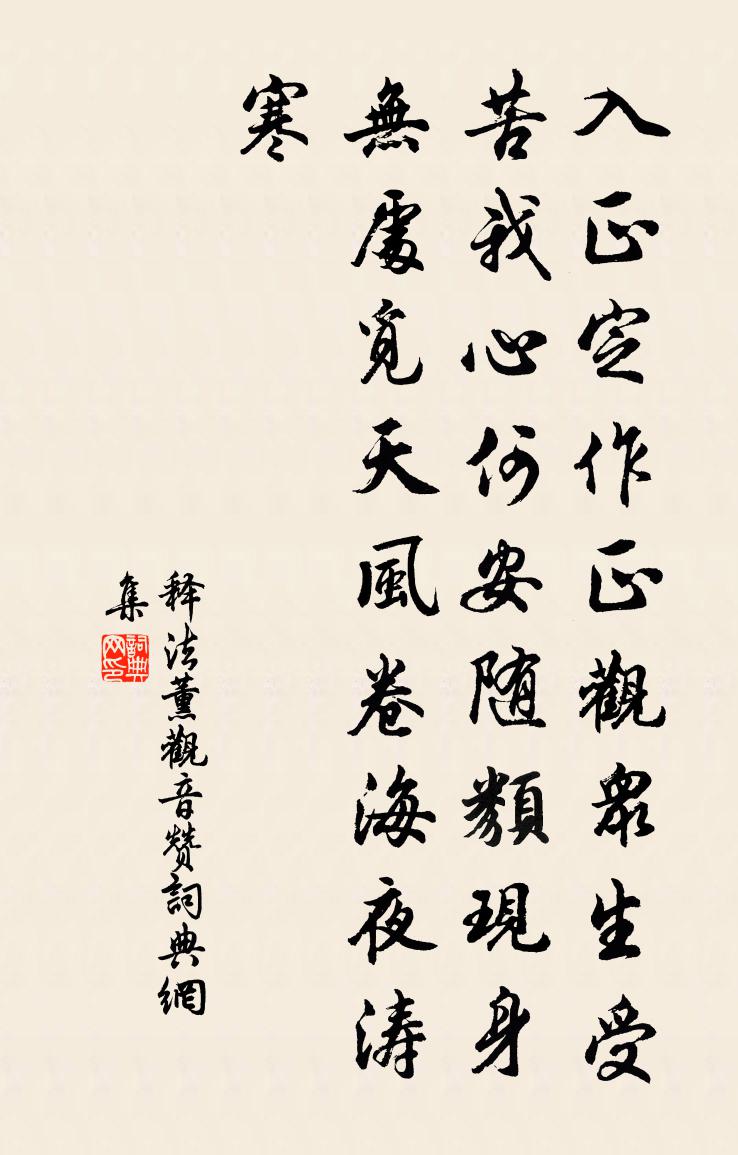 入正定作正觀衆生受
苦我心何安随類現身
無處覓天風卷海夜涛
寒
释法薰觀音赞詞典網
集
詞典网印